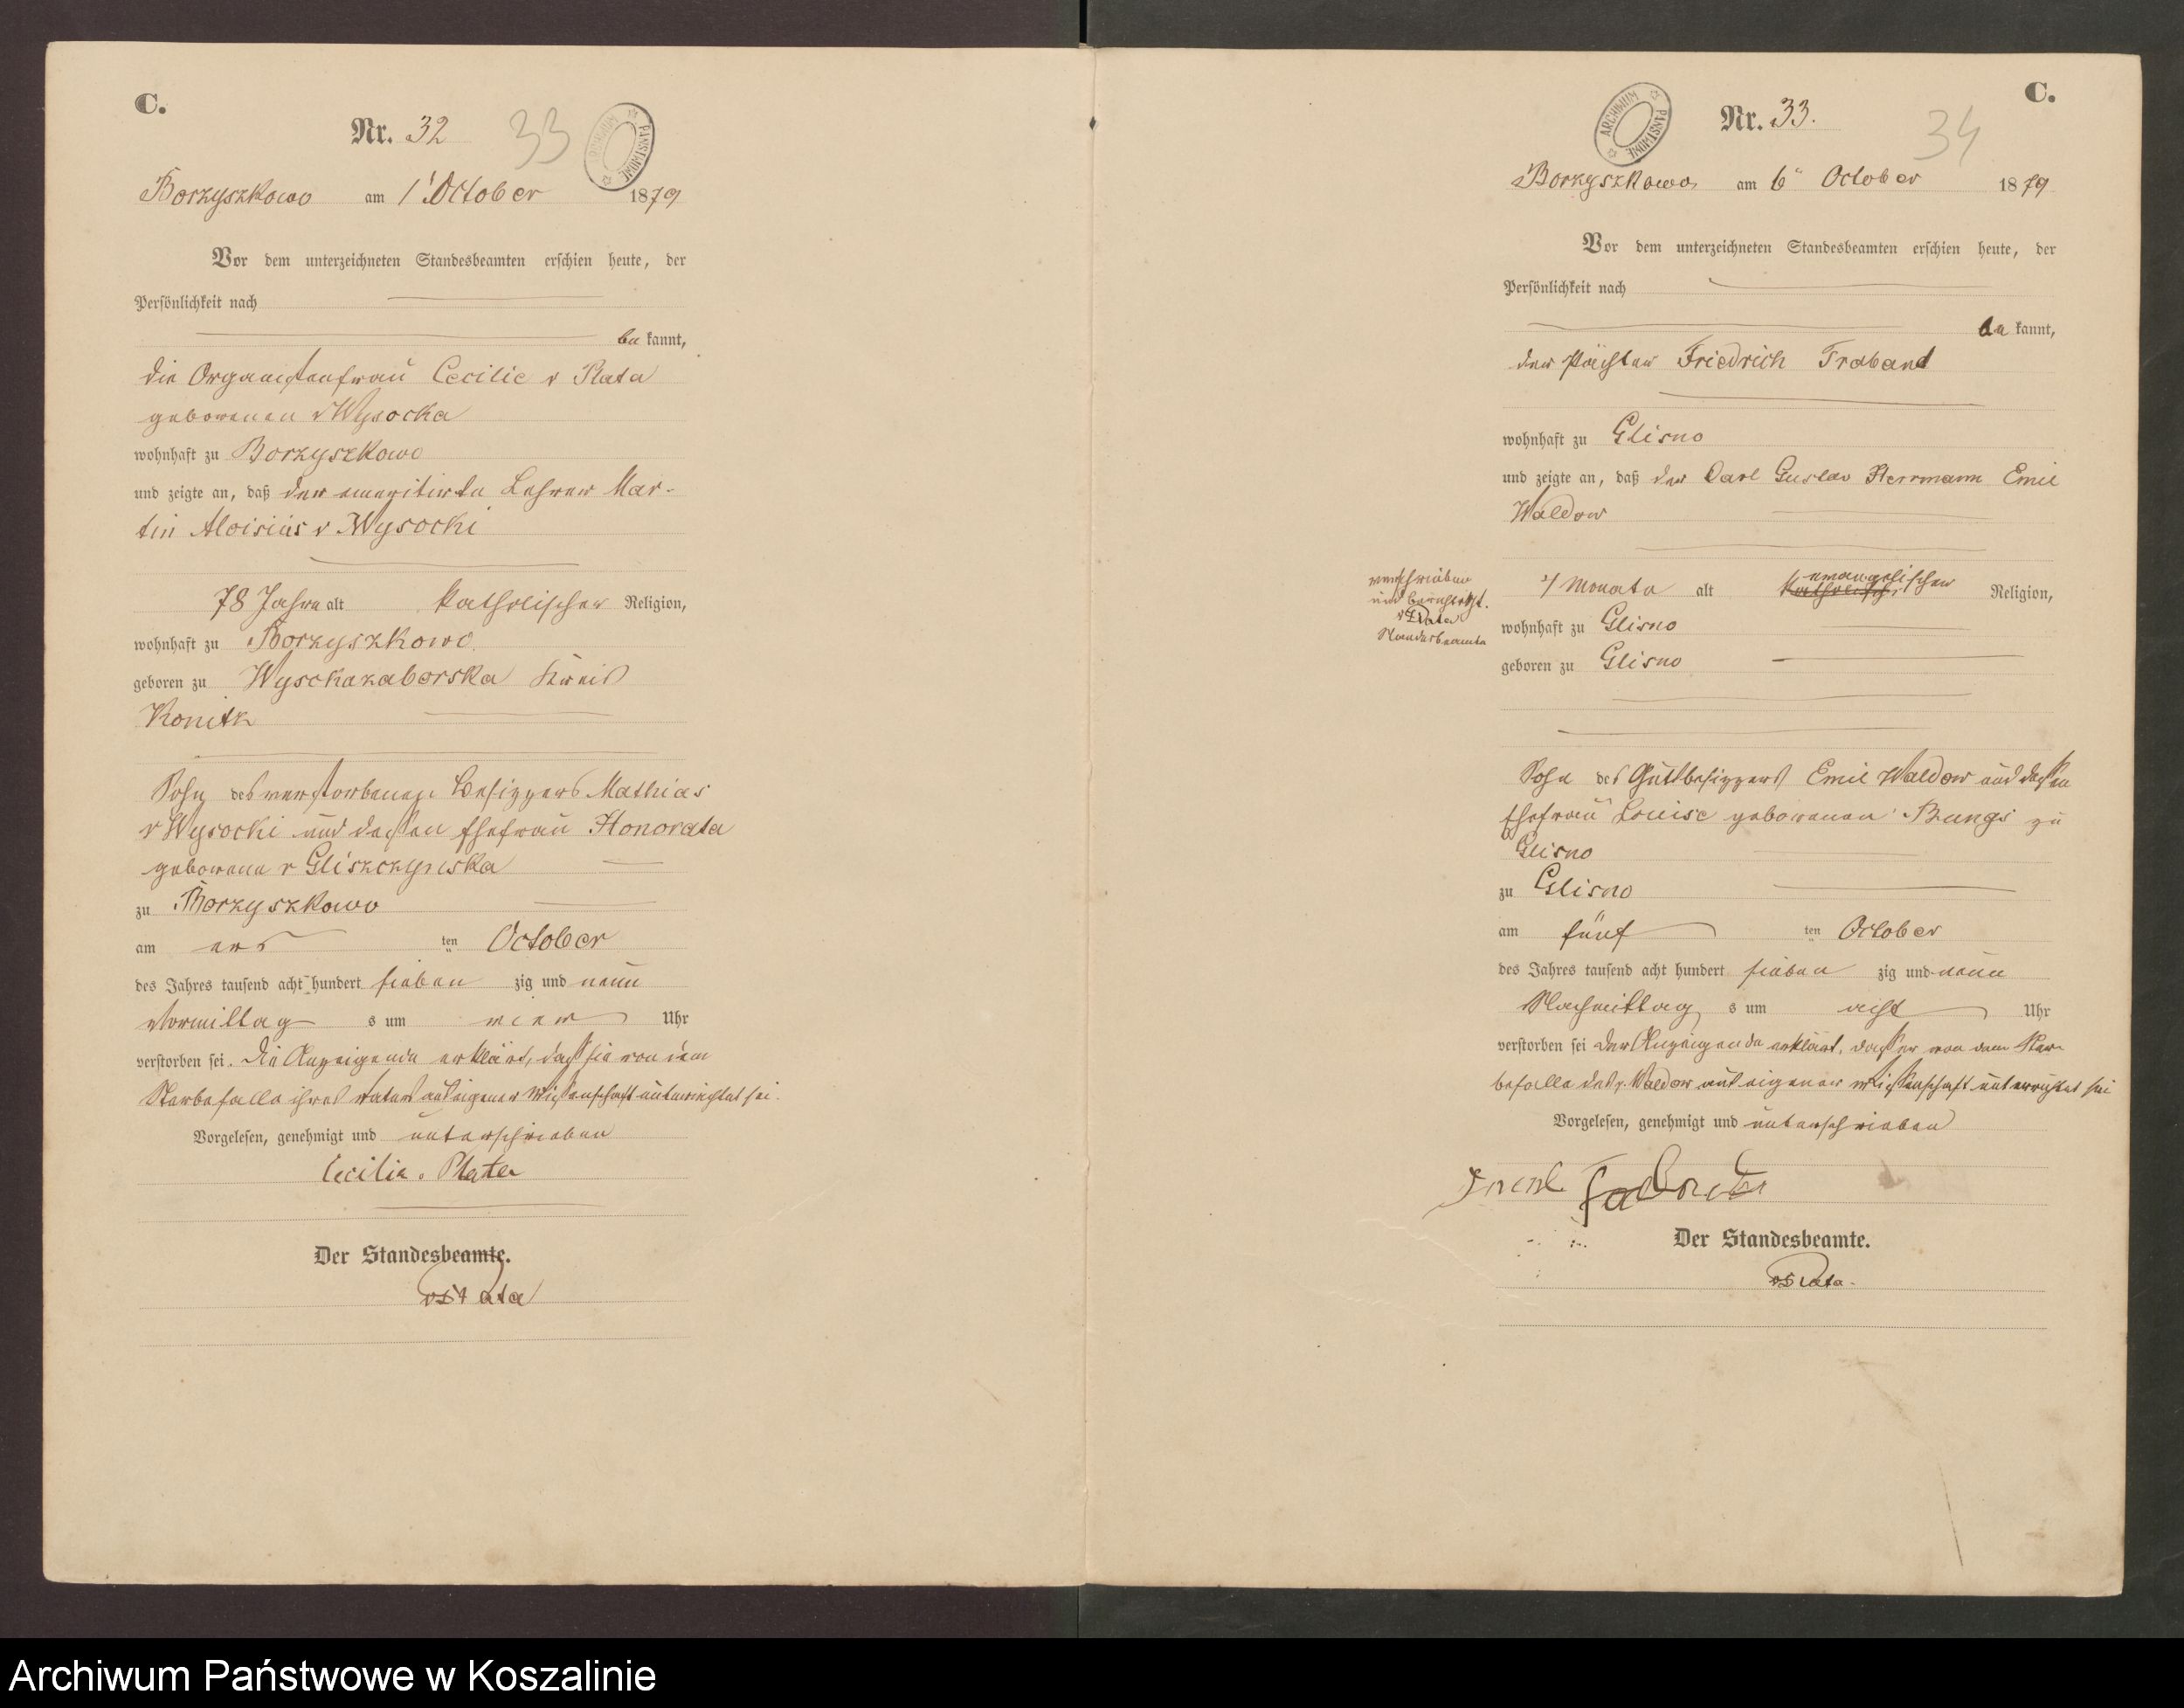 C.
Nr. 32
33
ARCHIWUM PAŃSTWOWE
Borzyszkowo am 1' October 1879
Vor dem unterzeichneten Standesbeamten erschien heute, der
Persönlichkeit nach
be kannt,
die Organistenfrau Cecilie v Plata
geborenen v Wysocka
wohnhaft zu Borzyszkowo
und zeigte an, daß der emeritirte Lehrer Mar-
tin Aloisius v Wysocki
78 Jahre alt katholischer Religion,
wohnhaft zu Borzyszkowo
geboren zu Wysckazaborska Kreis
Konitz
Sohn des verstorbenen Besitzers Mathias
v Wysocki und dessen Ehefrau Honorata
geborene v Gliszczynska
zu Borzyszkowo
am ers ten October
des Jahres tausend acht hundert sieben zig und neun
Vormittag s um vier Uhr
verstorben sei. Die Anzeigende erklärt, daß sie von dem
Sterbefalle ihres Vaters aus eigener Wissenschaft unterrichtet sei.
Vorgelesen, genehmigt und unterschrieben
Cecilia v. Plata
Der Standesbeamte.
v Plata
C.
Nr. 33.
34
ARCHIWUM PAŃSTWOWE
Borzyszkowo am 6" October 1879
Vor dem unterzeichneten Standesbeamten erschien heute, der
Persönlichkeit nach
be kannt,
der Pächter Friedrich Traband
wohnhaft zu Glisno
und zeigte an, daß der Carl Gustav Herrmann Emil
Waldow
verschrieben
und berichtigt.
v Plata
Standesbeamte
4 Monate alt katholischer evangelischer Religion,
wohnhaft zu Glisno
geboren zu Glisno
Sohn des Gutsbesitzers Emil Waldow und dessen
Ehefrau Louise geborenen Bungs zu
Glisno
zu Glisno
am fünf ten October
des Jahres tausend acht hundert sieben zig und neun
Nachmittag s um acht Uhr
verstorben sei Der Anzeigende erklärt, daß er von dem Ster-
befalle des v. Waldow aus eigener Wissenschaft unterrichtet sei
Vorgelesen, genehmigt und unterschrieben
Der Standesbeamte.
v Plata.
Archiwum Państwowe w Koszalinie